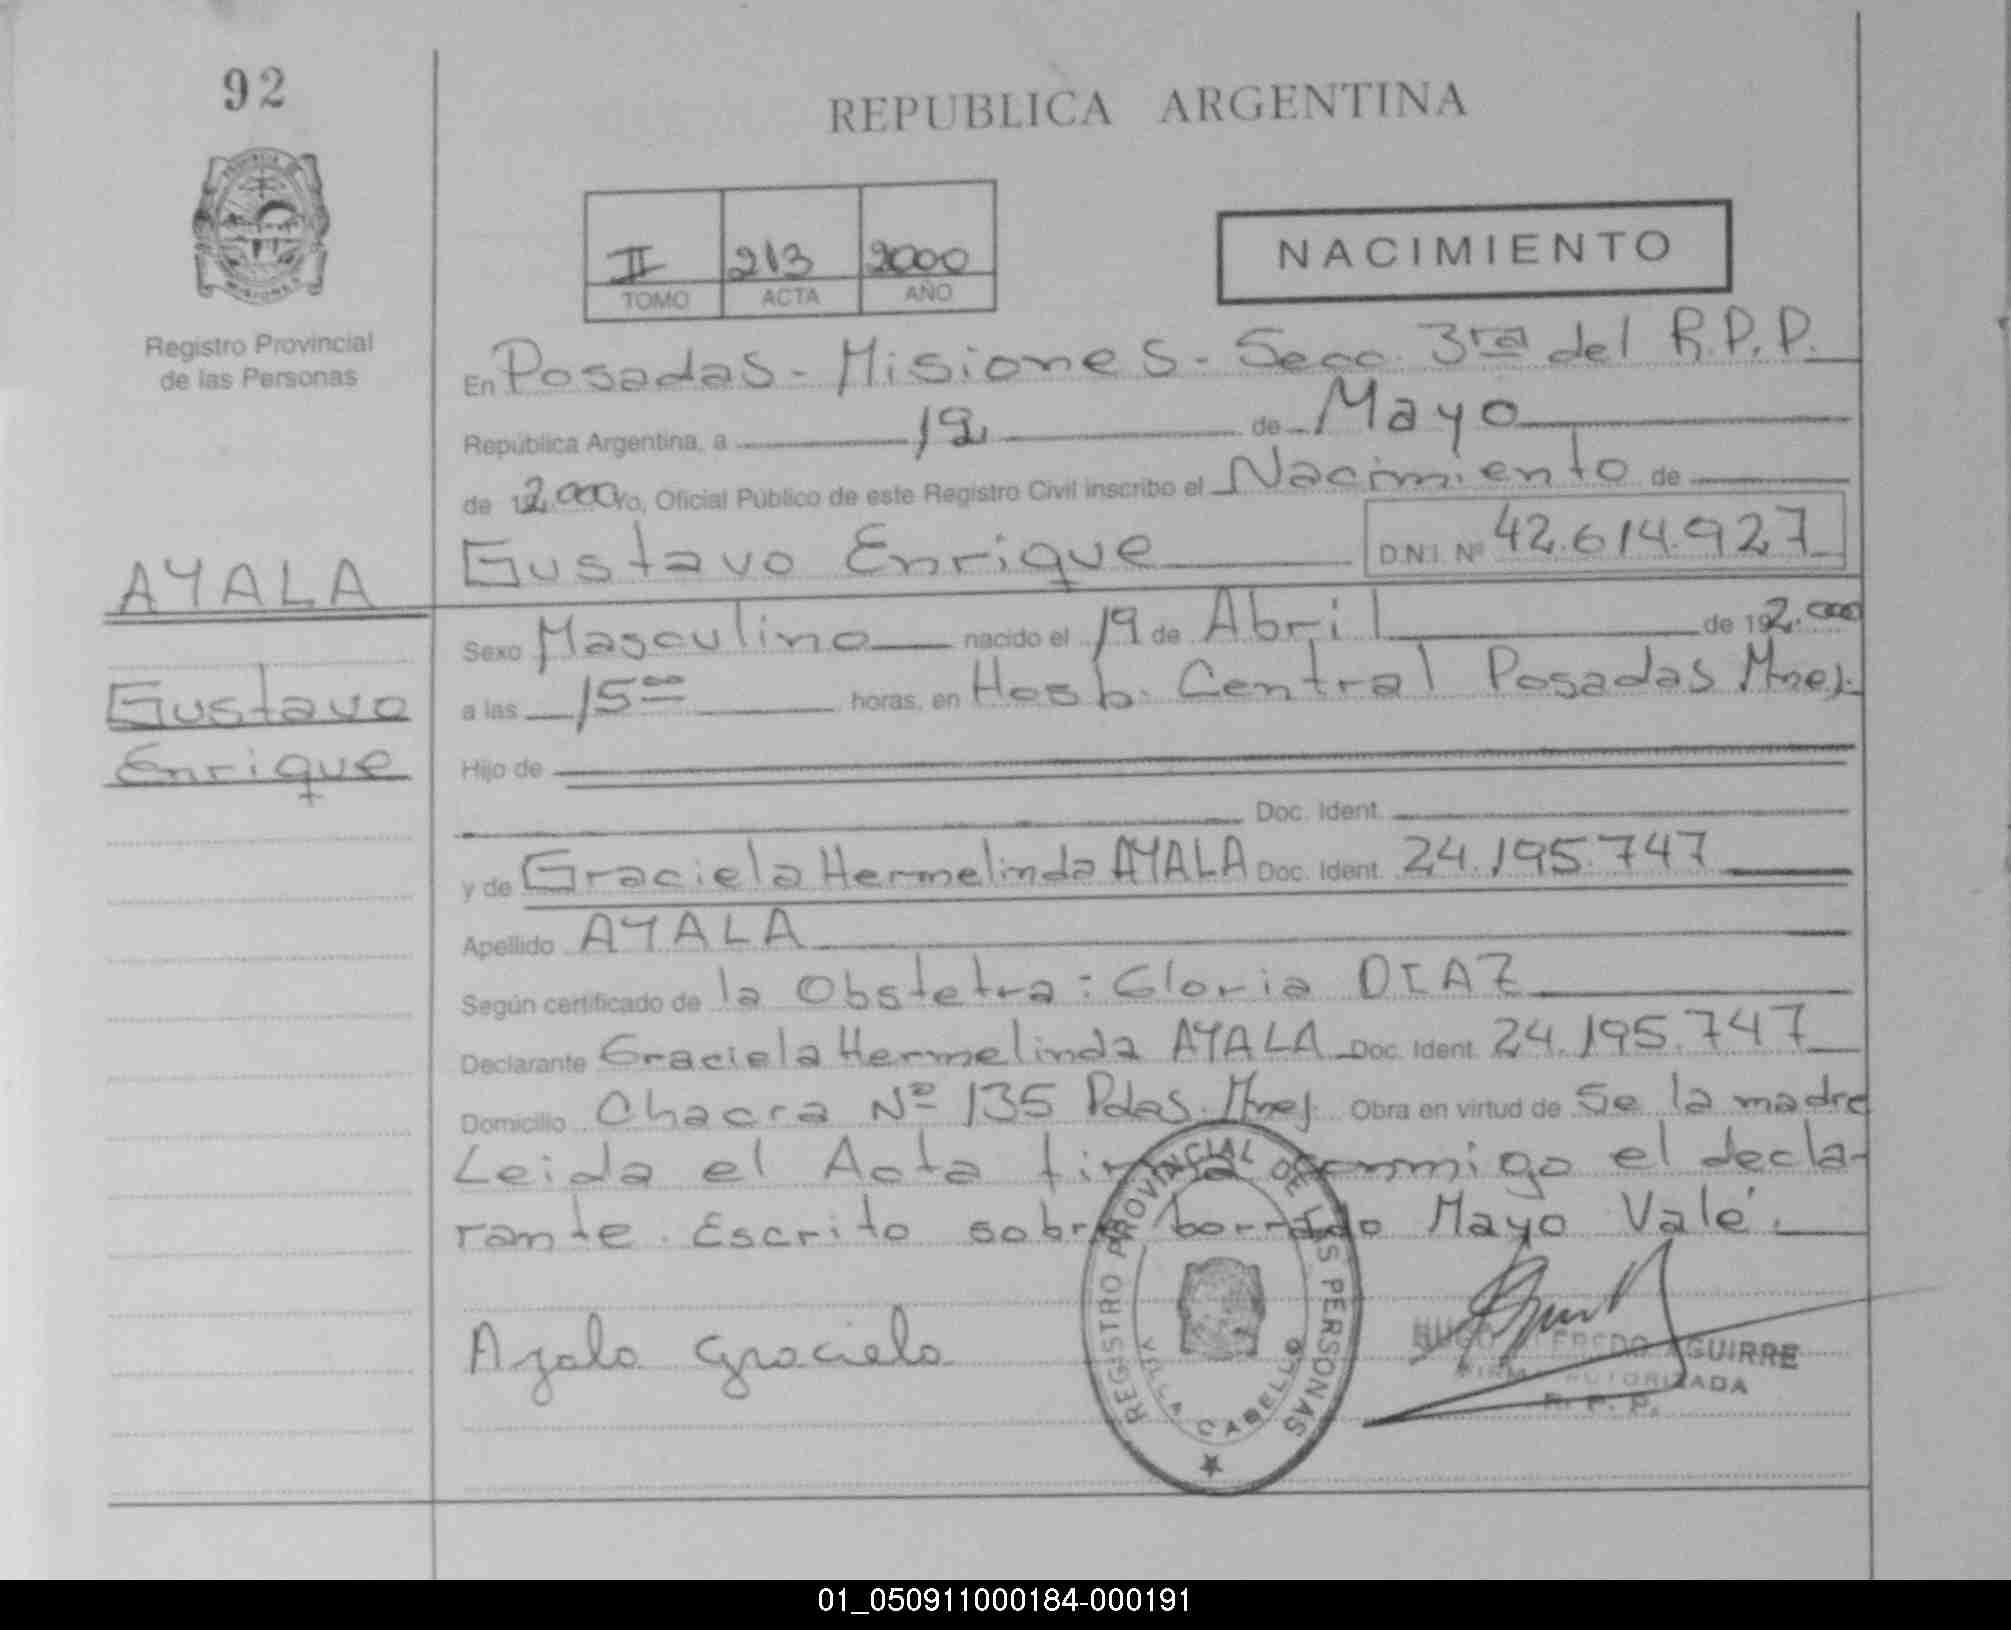 92
REPUBLICA ARGENTINA
II 213 2000
TOMO ACTA AÑO
NACIMIENTO
Registro Provincial
de las Personas
En Posadas - Misiones - Secc. 3ra del R.P.P.
República Argentina, a 12 de Mayo
de 2.000 yo, Oficial Público de este Registro Civil inscribo el Nacimiento de
Gustavo Enrique D.N.I. Nº 42.614.927
AYALA
Gustavo
Enrique
Sexo Masculino nacido el 19 de Abril de 192.000
a las 15 00 horas, en Hosp. Central Posadas Mnes.
Hijo de
Doc. Ident.
y de Graciela Hermelinda AYALA Doc. Ident. 24.195.747
Apellido AYALA
Según certificado de la Obstetra: Gloria DIAZ
Declarante Graciela Hermelinda AYALA Doc. Ident. 24.195.747
Domicilio Chacra Nº 135 Pdas. Mnes. Obra en virtud de Se la madre
Leida el Acta firma conmigo el decla-
rante. Escrito sobre borrado Mayo Vale.
Ayala Graciela
REGISTRO PROVINCIAL DE LAS PERSONAS
VILLA CABELLO
HUGO ALFREDO AGUIRRE
FIRMA AUTORIZADA
R. P. P.
01_050911000184-000191